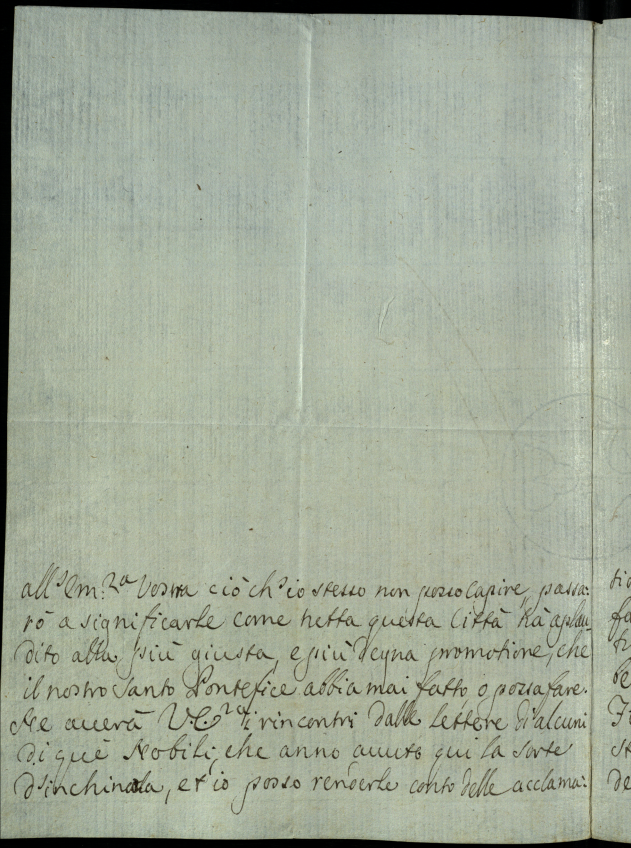 all'Em:za Vostra ciò ch'io stesso non posso capire, passa:
rò a significarle come tutta questa Città hà aplau
dito alla più giusta, e più degna promotione, che
il nostro Santo Pontefice abbia mai fatto o possa fare.
Ne averà V.E.za i rincontri dalle lettere di alcuni
di què Nobili, che anno avuto qui la sorte
d'inchinarla, et io posso renderle conto delle acclama: